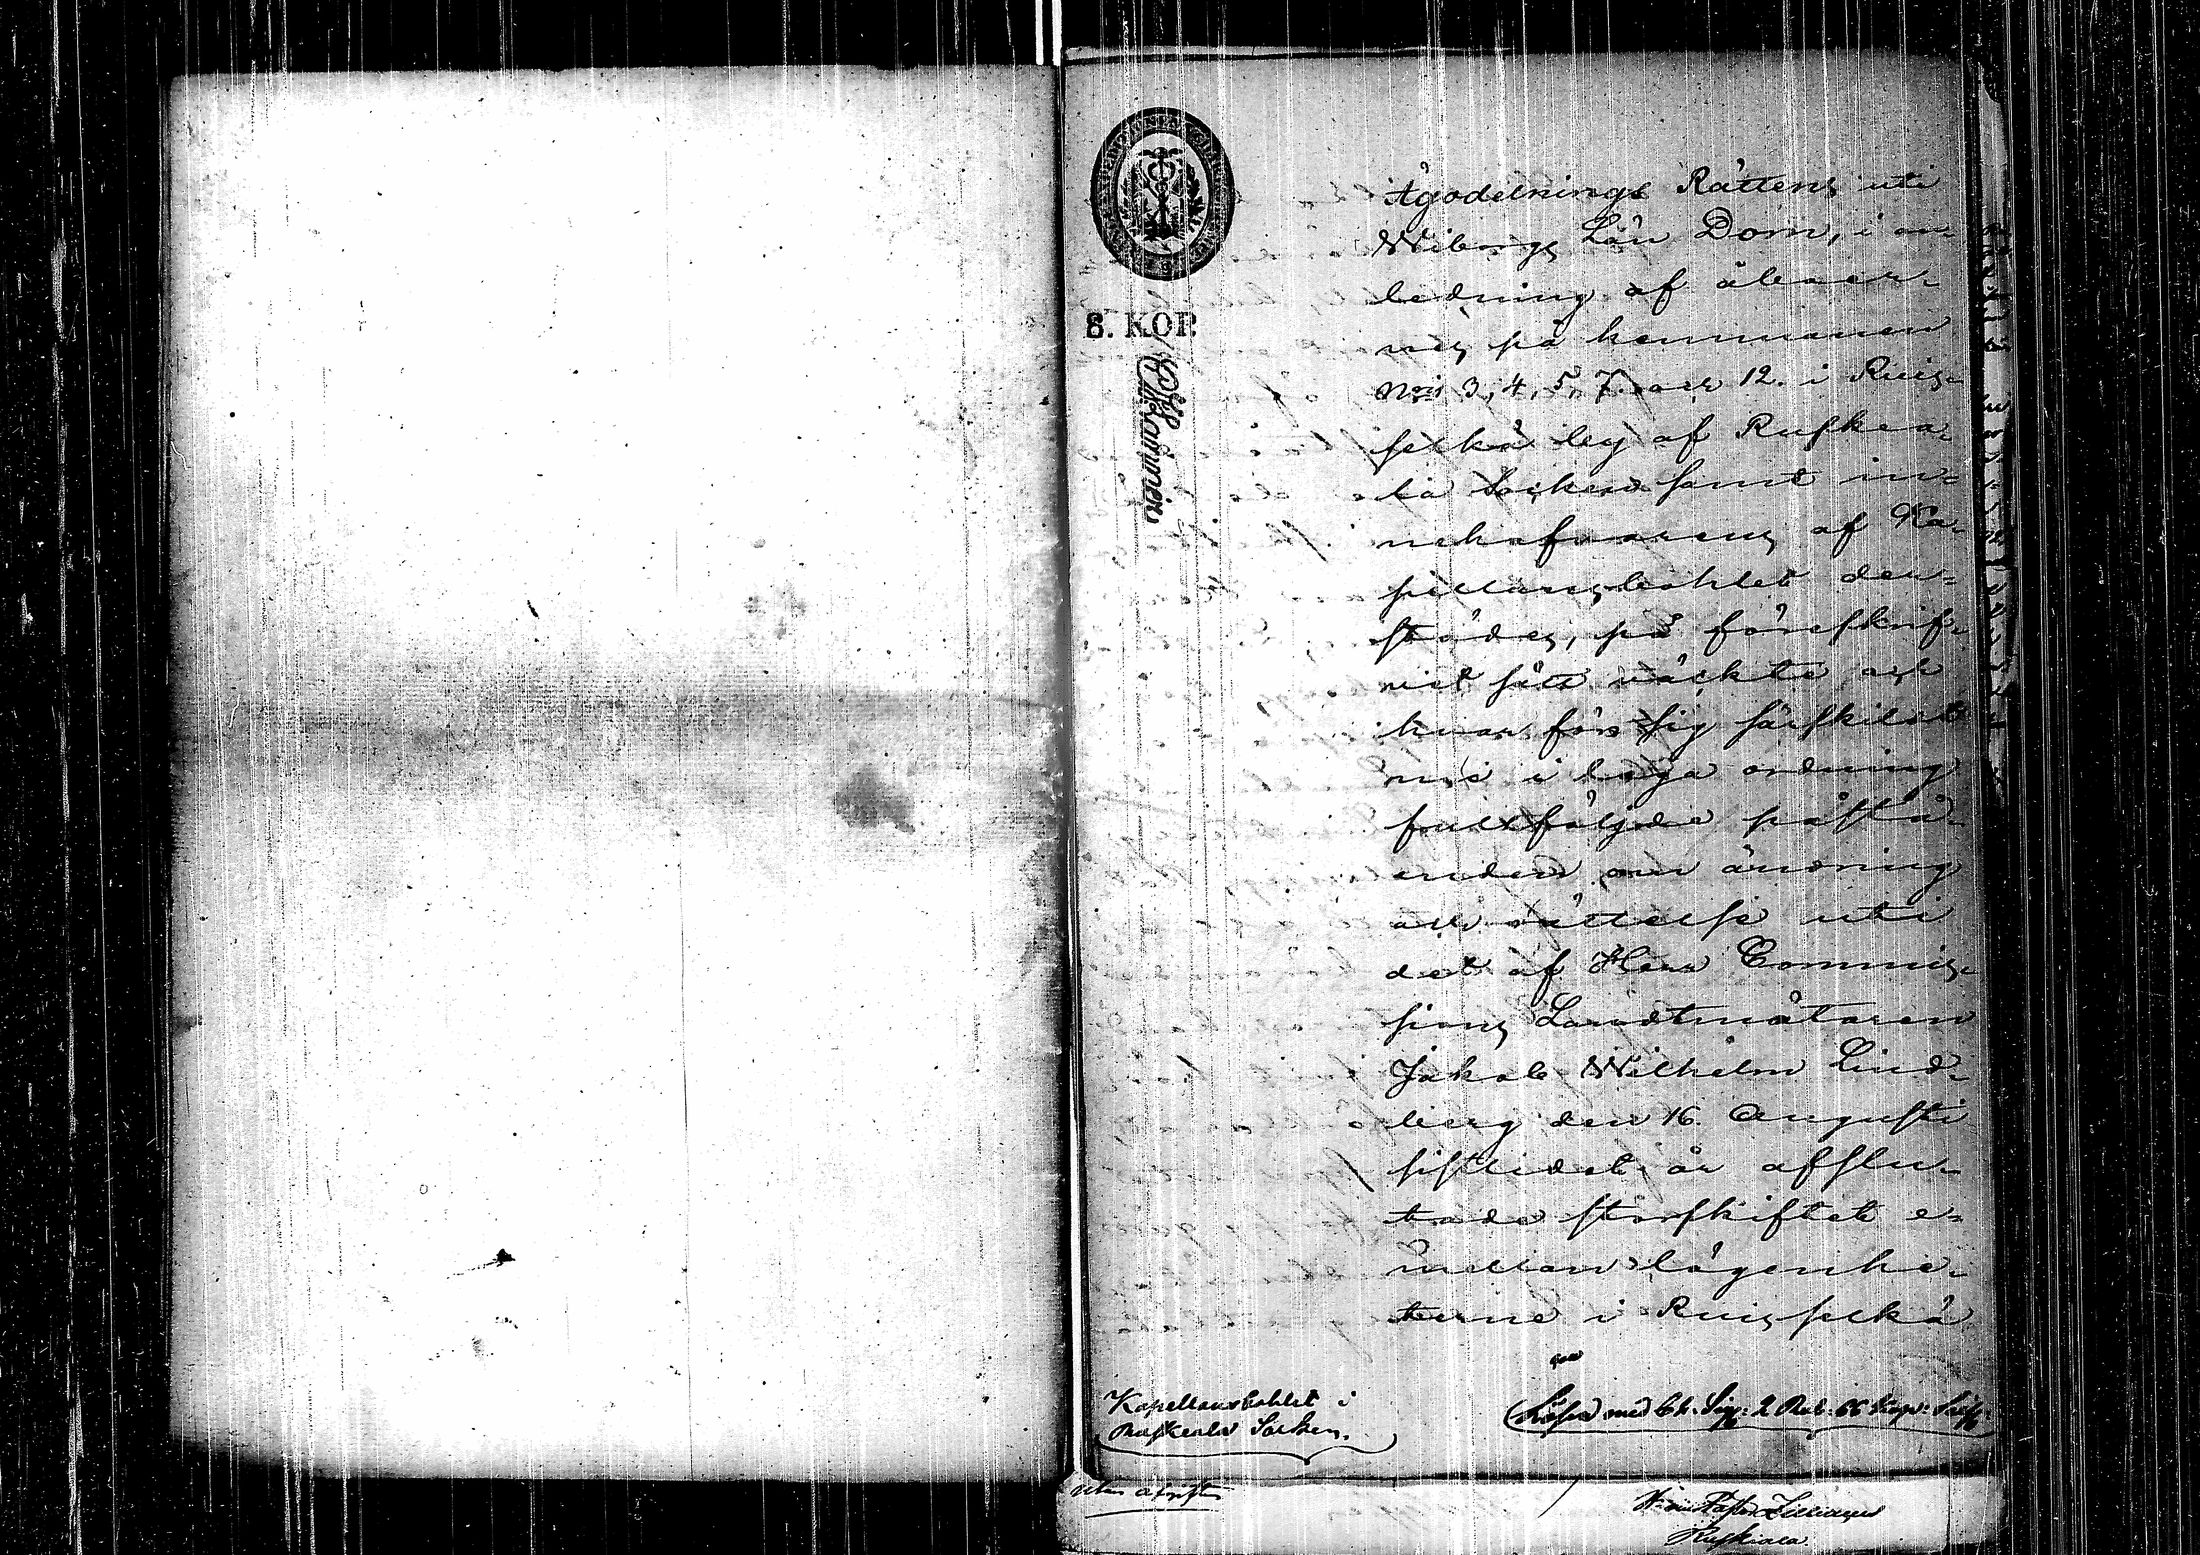 8. KOP.
Ägodelnings Rättens uti
Wiborgs Län Dom, i an-
ledning af åboer-
nes på hemmanen
N:ris 3, 4, 5, 7 och 12. i Ruis-
selkä by af Ruskea-
la Socken samt in-
nehafvarens af Ka-
pellansbohlet der-
städes, på föreskrif-
vet sätt väckte och
hvar för sig särskildt
i laga ordning
fullföljde påstå-
enden om ändring
och rättelse uti
det af Herr Commis-
sions Landtmätaren
Jakob Wilhelm Lind-
berg den 16. Augusti
sistledet år afslu-
tade storskiftet e-
mellan lägenhe-
terne i Ruisselkä
Kapellansbohlet i
Ruskeala Socken.
Löses med Ch. Sig: 2 Rub. 66 Kop. Silf:
Ruskiala